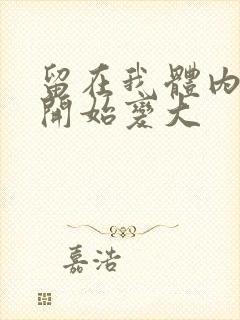 留在我體內
開始變大
嘉浩